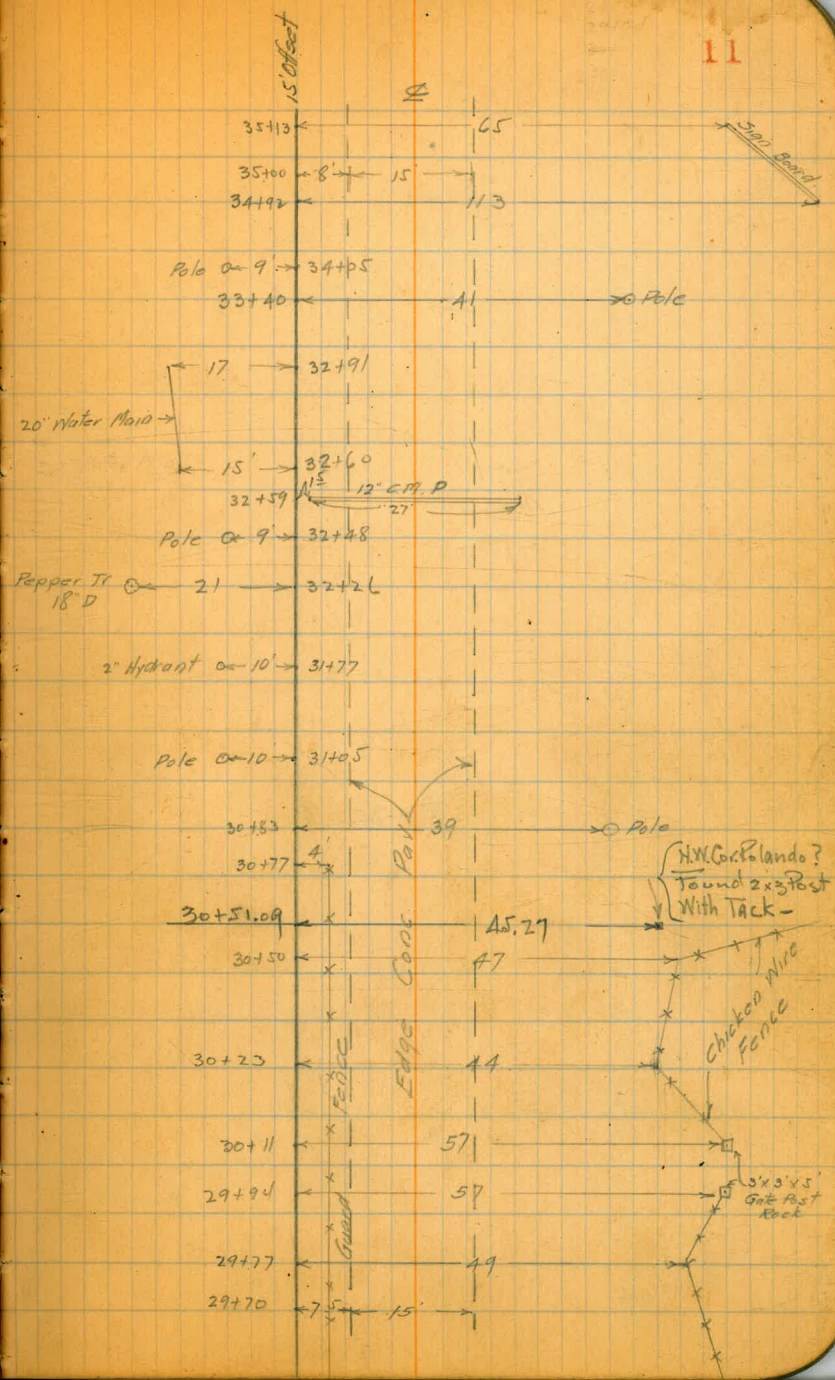 11
15' Offset
℄
35+13 65
Sign Board
35+00 8' 15
34+92 113
Pole 9' 34+05
33+40 41 Pole
17 32+91
20" Water Main
15' 32+60
32+59 1.5 12" C.M.P
27
Pole 9' 32+48
Pepper Tr 21 32+26
18" D
2" Hydrant 10' 31+77
Pole 10' 31+05
30+83 39 Pole
30+77 4'
N.W. Cor. Polando ?
Found 2x3 Post
With Tack -
30+51.09 45.27
30+50 47
Chicken Wire
Fence
Edge Conc Pav
30+23 44
Guard Fence
30+11 57
29+94 57
3'x3'x5'
Gate Post
Rock
29+77 49
29+70 7.5 15'